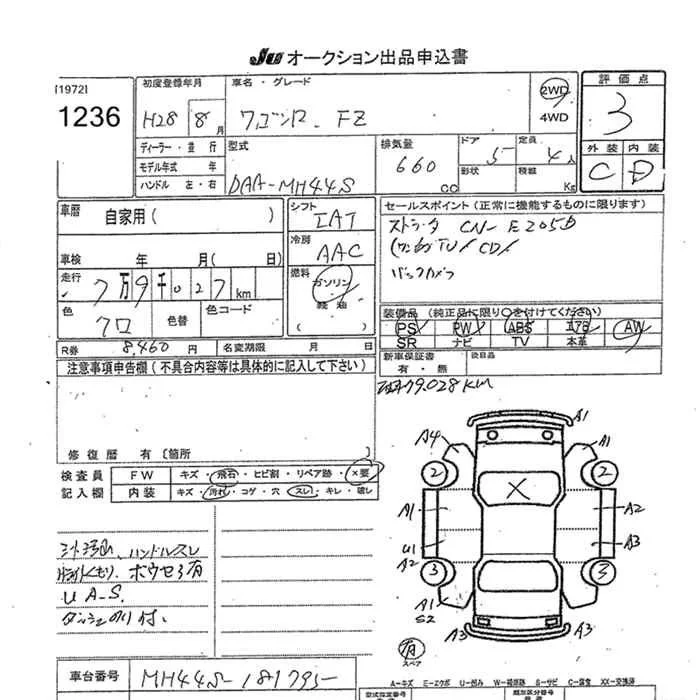 JU オークション出品申込書
[1972]
1236
初度登録年月
H28 8月
車名・グレード
ワゴンR FZ
2WD
4WD
評価点
3
ディーラー・並行
モデル年式 年
ハンドル 左・右
型式
DAA-MH44S
排気量
660 CC
ドア
5
形状
定員
4人
積載
Kg
外装 内装
C D
車歴
自家用( )
車検 年 月( 日)
走行
7万9千027km
色
クロ
色替
色コード
シフト
IAT
冷房
AAC
燃料
ガソリン・軽油
( )
セールスポイント(正常に機能するものに限ります)
バックカメラ
装備品(純正品に限り○を付けてください)
PS PW ABS エアB AW
SR ナビ TV 本革
新車保証書 後日品
有・無
R券 8,460円 名変期限 月 日
79.028KM
注意事項申告欄(不具合内容等は具体的に記入して下さい)
修復歴 有〔箇所 〕
検査員 FW キズ・飛石・ヒビ割・リペア跡・×要
記入欄 内装 キズ・汚れ・コゲ・穴・スレ・キレ・破レ
ハンドルスレ
A1
A4 A1
2 2
X
A1 A2
U1 A3
A2
3 3
A1
S2
A3 A3
有
スペア
車台番号 MH44S-181795
A-キズ E-エクボ U-凹み W-補修跡 S-サビ C-腐食 XX-交換済